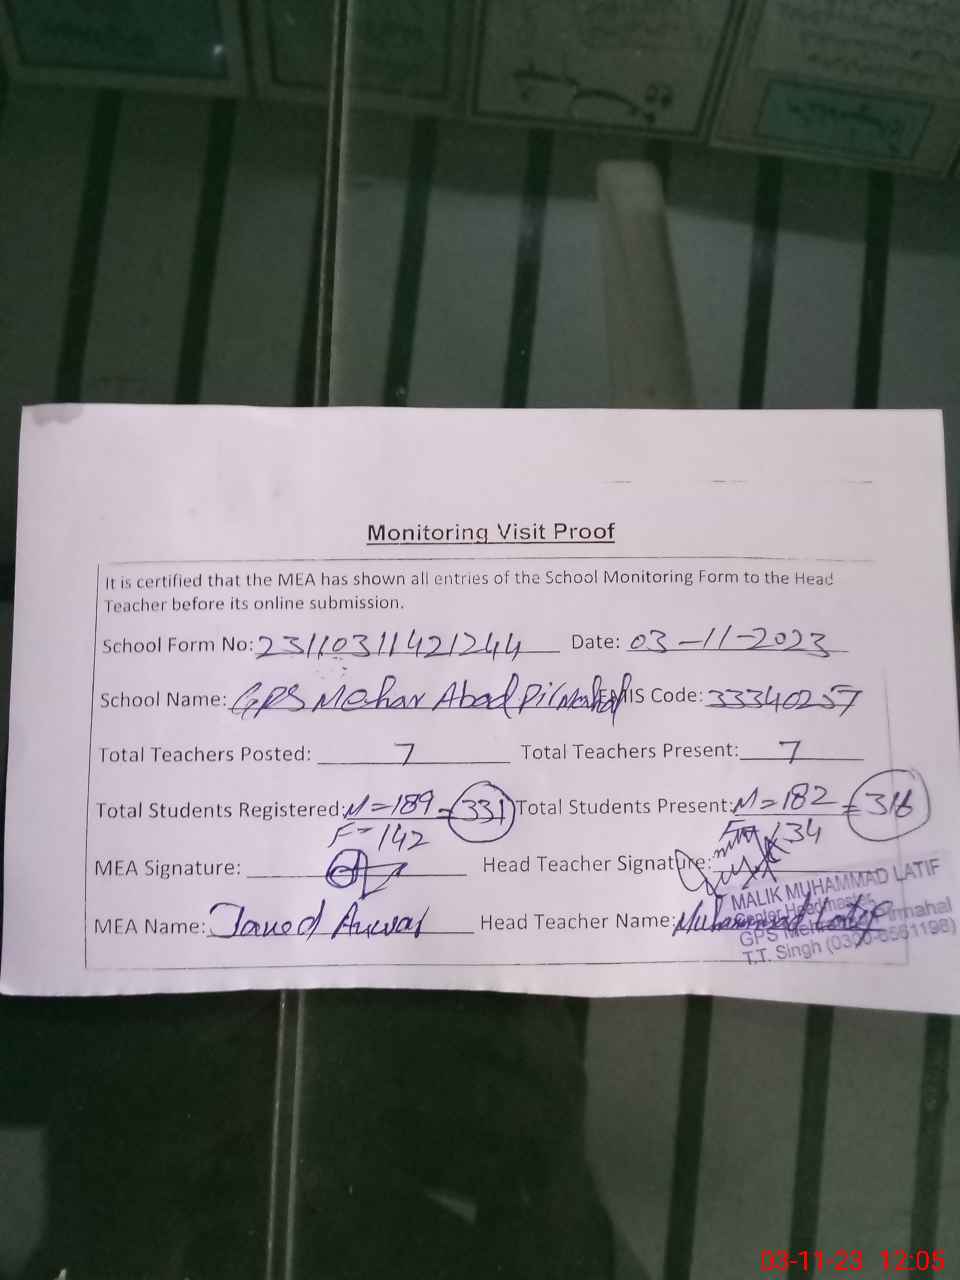 Monitoring Visit Proof
It is certified that the MEA has shown all entries of the School Monitoring Form to the Head
Teacher before its online submission.
School Form No: 23110311421244 Date: 03-11-2023
School Name: GPS Mehar Abad Pirmahal EMIS Code: 33340257
Total Teachers Posted: 7 Total Teachers Present: 7
Total Students Registered: M=189 =331 Total Students Present: M=182 =316
F=142 F= 134
MEA Signature: Head Teacher Signature:
MALIK MUHAMMAD LATIF
Center Headmaster
MEA Name: Javed Anwar Head Teacher Name: Muhammad Latif
GPS Pirmahal
T.T. Singh
03-11-23 12:05